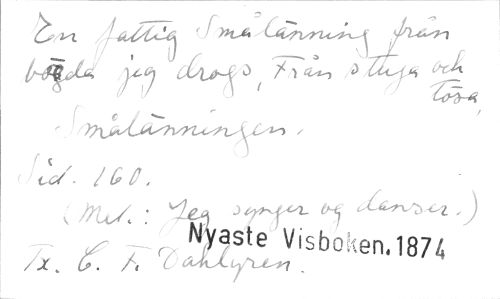 En fattig Smålänning från
bögda jeg drogs, Från stuga och
tösa,
Smålänningen.
Sid. 160.
(Mel.: Jeg synger og danser.)
Nyaste Visboken. 1874
Tx. C. F. Dahlgren.